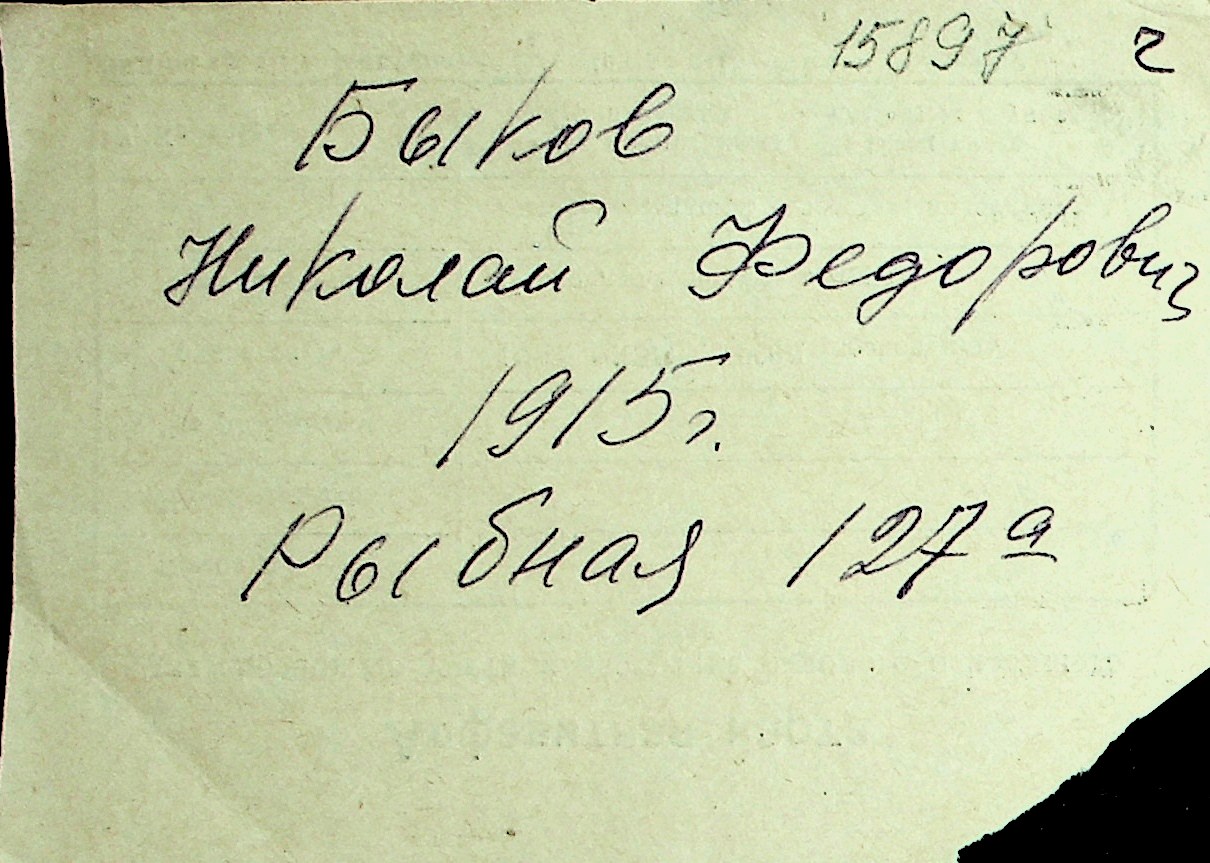 15897 г
Быков
Николай Федорович
1915 г.
Рыбная 127 а